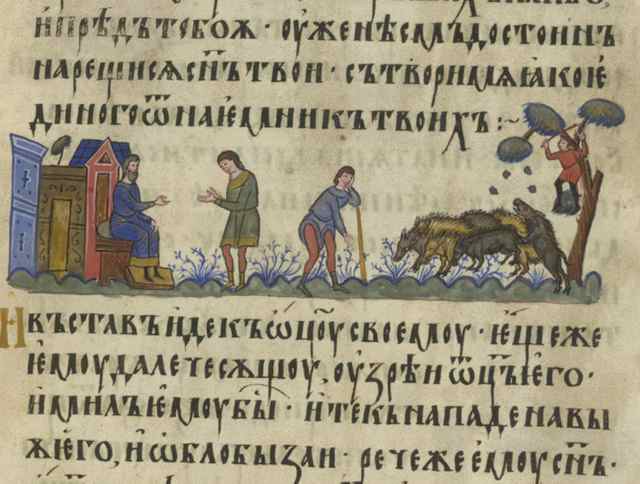 и прѣдъ тобоѫ · оуже нѣсмъ достоинъ
нарещисѧ сн҃ъ твои · сътвори мѧ ꙗко ѥ
диного ѿ наѥмникъ твоихъ :~
И въставъ иде къ ѡц҃оу своемоу · ѥще же
ѥмоу далече сѫщоу, оузрѣ и ѿц҃ъ ѥго ·
и милъ ѥмоу бы · и текъ нападе на вы
ѫ ѥго, и ѡблобыза и · рече же емоу сн҃ъ ·